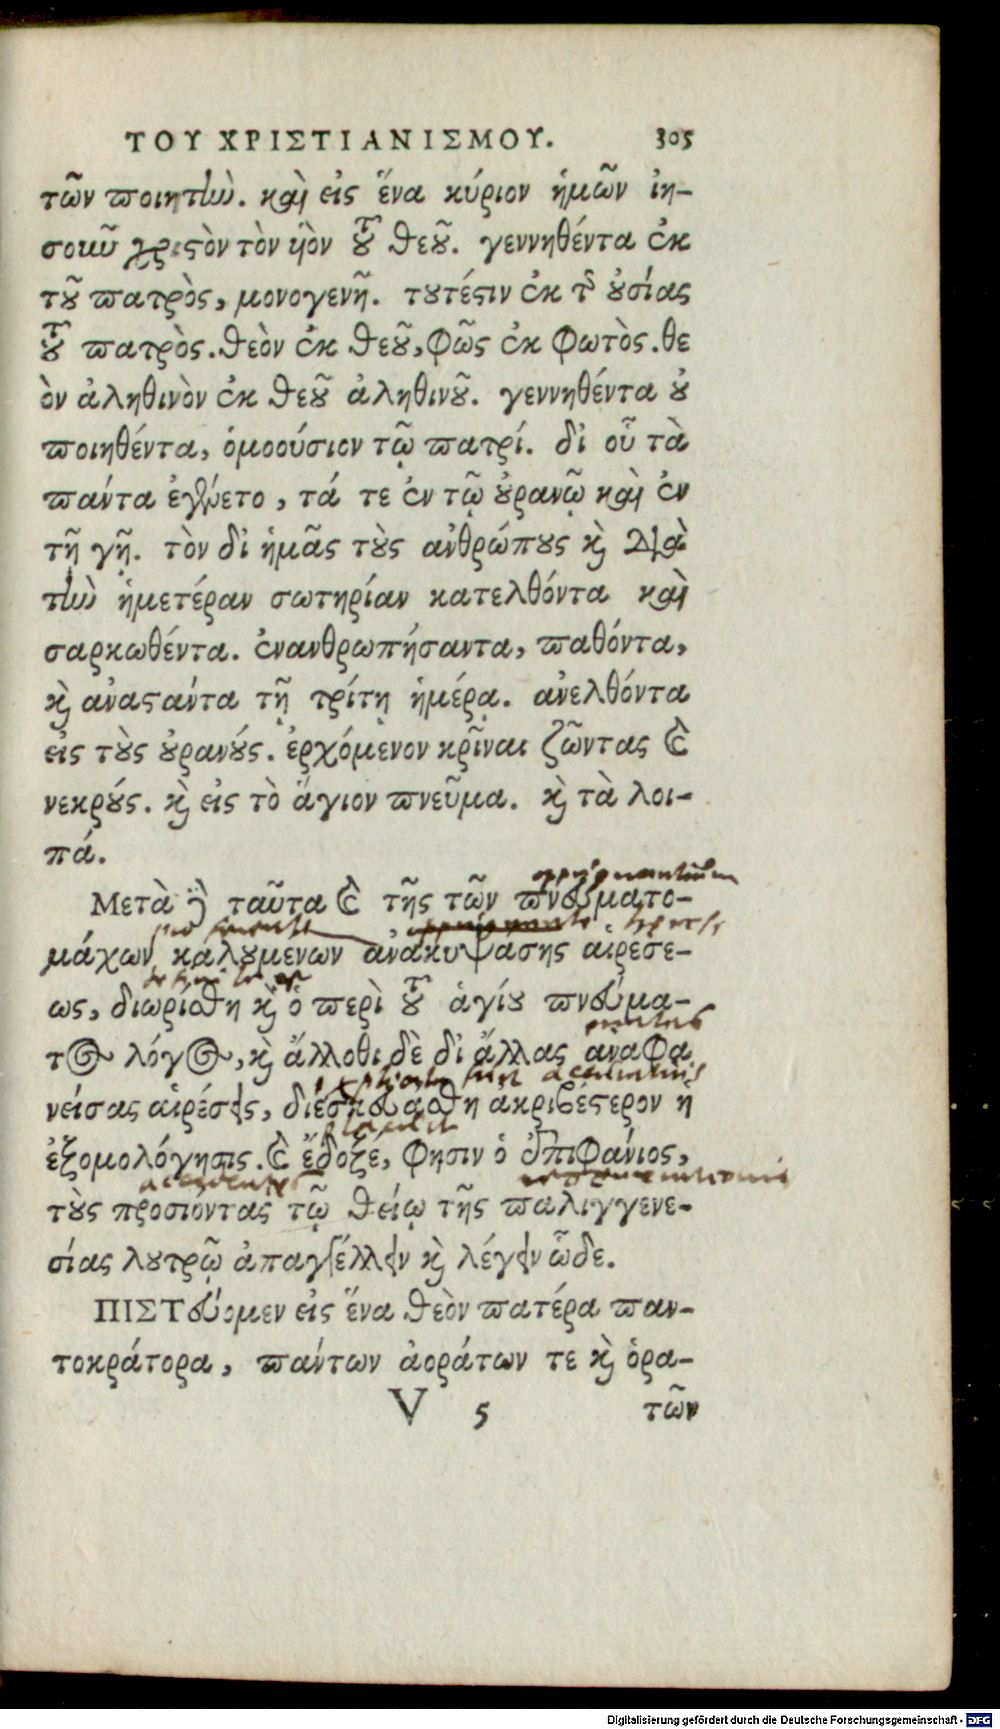 ΤΟΥ ΧΡΙΣΤΙΑΝΙΣΜΟΥ. 305
τῶν ποιητὴν. καὶ εἰς ἕνα κύριον ἡμῶν ἰη-
σοιῦ χριστὸν τὸν ὑὸν τοῦ θεοῦ. γεννηθέντα ἐκ
τοῦ πατρὸς, μονογενῆ. τουτέστιν ἐκ τῆς οὐσίας
τοῦ πατρὸς. θεὸν ἐκ θεοῦ, φῶς ἐκ φωτὸς. θε
ὸν ἀληθινὸν ἐκ θεοῦ ἀληθινοῦ. γεννηθέντα οὐ
ποιηθέντα, ὁμοούσιον τῷ πατρί. δι οὗ τὰ
πάντα ἐγένετο, τά τε ἐν τῷ οὐρανῷ καὶ ἐν
τῇ γῇ. τὸν δι ἡμᾶς τοὺς ἀνθρώπους καὶ διὰ
τὴν ἡμετέραν σωτηρίαν κατελθόντα καὶ
σαρκωθέντα. ἐνανθρωπήσαντα, παθόντα,
καὶ ἀναστάντα τῇ τρίτῃ ἡμέρᾳ. ἀνελθόντα
εἰς τοὺς οὐρανούς. ἐρχόμενον κρῖναι ζῶντας καὶ
νεκρούς. καὶ εἰς τὸ ἅγιον πνεῦμα. καὶ τὰ λοι-
πά.
Μετὰ δὲ ταῦτα καὶ τῆς τῶν πνευματο-
μάχων καλουμένων ἀνακυψάσης αἱρέσε-
ως, διωρίσθη καὶ ὁ περὶ τοῦ ἁγίου πνεύμα-
τος λόγος, καὶ ἄλλοθι δὲ δι ἄλλας ἀναφα
νείσας αἱρέσεις, διεσκευάσθη ἀκριβέστερον ἡ
ἐξομολόγησις. καὶ ἔδοξε, φησιν ὁ ἐπιφάνιος,
τοὺς προσιόντας τῷ θείῳ τῆς παλιγγενε-
σίας λουτρῷ ἀπαγγέλλειν καὶ λέγειν ὧδε.
ΠΙΣΤεύομεν εἰς ἕνα θεὸν πατέρα παν-
τοκράτορα, πάντων ἀοράτων τε καὶ ὁρα-
V 5 τῶν
Digitalisierung gefördert durch die Deutsche Forschungsgemeinschaft - DFG